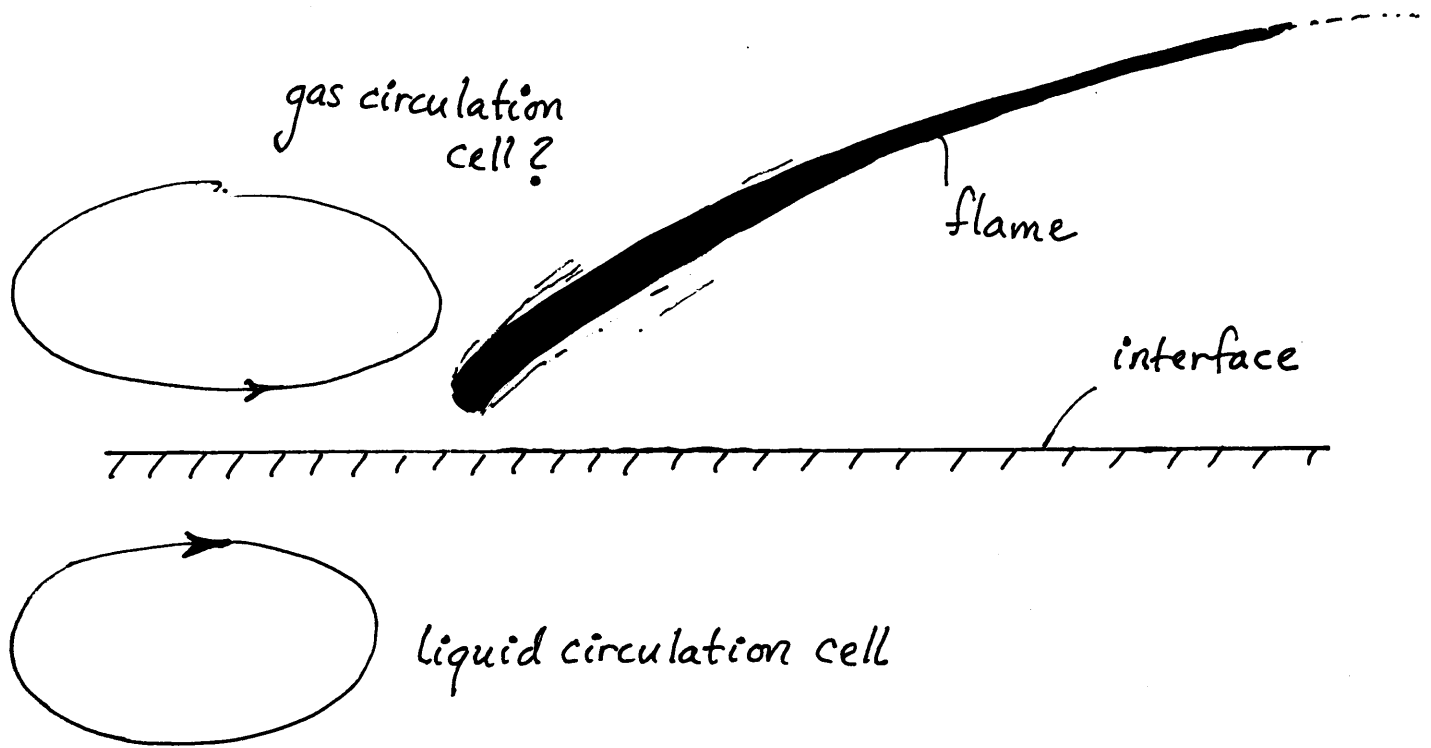 gas circulation
cell?
flame
interface
liquid circulation cell